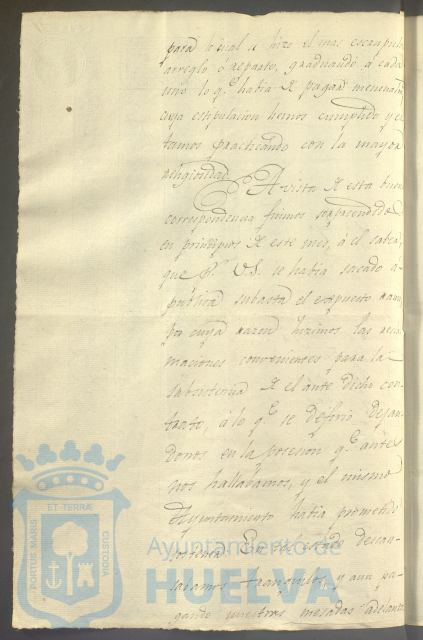 para lo qual se hizo el mas escrupulo
arreglo ó reparto, graduando á cada
uno lo q.e havia de pagar mensual
cuya estipulacion hemos cumplido y es
tamos practicando con la mayor
religiosidad.
A vista de esta buena
correspondencia fuimos sorprendidos
en principios de este mes, á el saber,
que p.r VS. se havia sacado a
publica subasta el expuesto ramo
por cuya razon hizimos las recla
maciones convenientes para la
subsistencia de el ante dicho con
trato, á lo q.e se defirió dejan
donos en la posesion q.e antes
nos hallabamos, y el mismo
Ayuntamiento havia prometido
sostener. En este estado descan
sabamos tranquilos, y aun pa
gando nuestras mesadas adelanta
PORTUS MARIS
ET TERRÆ
CUSTODIA
Ayuntamiento de
HUELVA